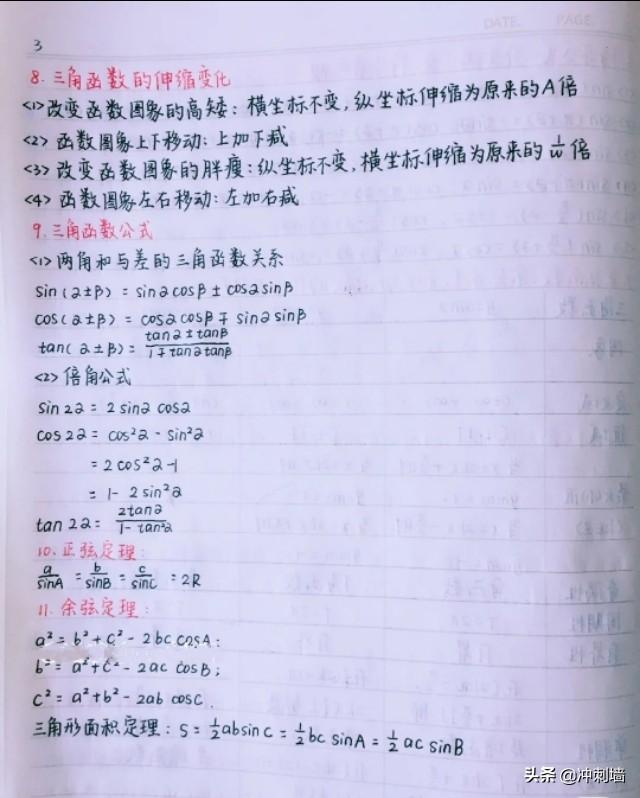 DATE. PAGE.
3
8. 三角函数的伸缩变化
<1> 改变函数图象的高矮: 横坐标不变, 纵坐标伸缩为原来的A倍
<2> 函数图象上下移动: 上加下减
<3> 改变函数图象的胖瘦: 纵坐标不变, 横坐标伸缩为原来的 1/w 倍
<4> 函数图象左右移动: 左加右减
9. 三角函数公式
<1> 两角和与差的三角函数关系
sin(α±β) = sinαcosβ ± cosαsinβ
cos(α±β) = cosαcosβ ∓ sinαsinβ
tan(α±β) = (tanα±tanβ)/(1∓tanαtanβ)
<2> 倍角公式
sin2α = 2sinαcosα
cos2α = cos²α - sin²α
= 2cos²α-1
= 1-2sin²α
tan2α = 2tanα/(1-tan²α)
10. 正弦定理:
a/sinA = b/sinB = c/sinC = 2R
11. 余弦定理:
a² = b²+c²-2bc cosA;
b² = a²+c²-2ac cosB;
c² = a²+b²-2ab cosC.
三角形面积定理: S = 1/2 absinC = 1/2 bc sinA = 1/2 ac sinB
头条 @冲刺墙